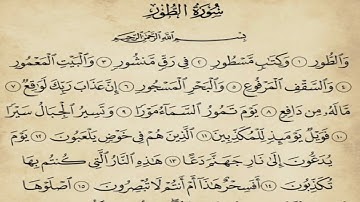 سُورَةُ الطُّورِ
بِسْمِ اللَّهِ الرَّحْمَٰنِ الرَّحِيمِ
وَالطُّورِ ١ وَكِتَابٍ مَسْطُورٍ ٢ فِي رَقٍّ مَنْشُورٍ ٣ وَالْبَيْتِ الْمَعْمُورِ
٤ وَالسَّقْفِ الْمَرْفُوعِ ٥ وَالْبَحْرِ الْمَسْجُورِ ٦ إِنَّ عَذَابَ رَبِّكَ لَوَاقِعٌ ٧
مَا لَهُ مِنْ دَافِعٍ ٨ يَوْمَ تَمُورُ السَّمَاءُ مَوْرًا ٩ وَتَسِيرُ الْجِبَالُ سَيْرًا
١٠ فَوَيْلٌ يَوْمَئِذٍ لِلْمُكَذِّبِينَ ١١ الَّذِينَ هُمْ فِي خَوْضٍ يَلْعَبُونَ ١٢ يَوْمَ
يُدَعُّونَ إِلَىٰ نَارِ جَهَنَّمَ دَعًّا ١٣ هَٰذِهِ النَّارُ الَّتِي كُنْتُمْ بِهَا
تُكَذِّبُونَ ١٤ أَفَسِحْرٌ هَٰذَا أَمْ أَنْتُمْ لَا تُبْصِرُونَ ١٥ اصْلَوْهَا